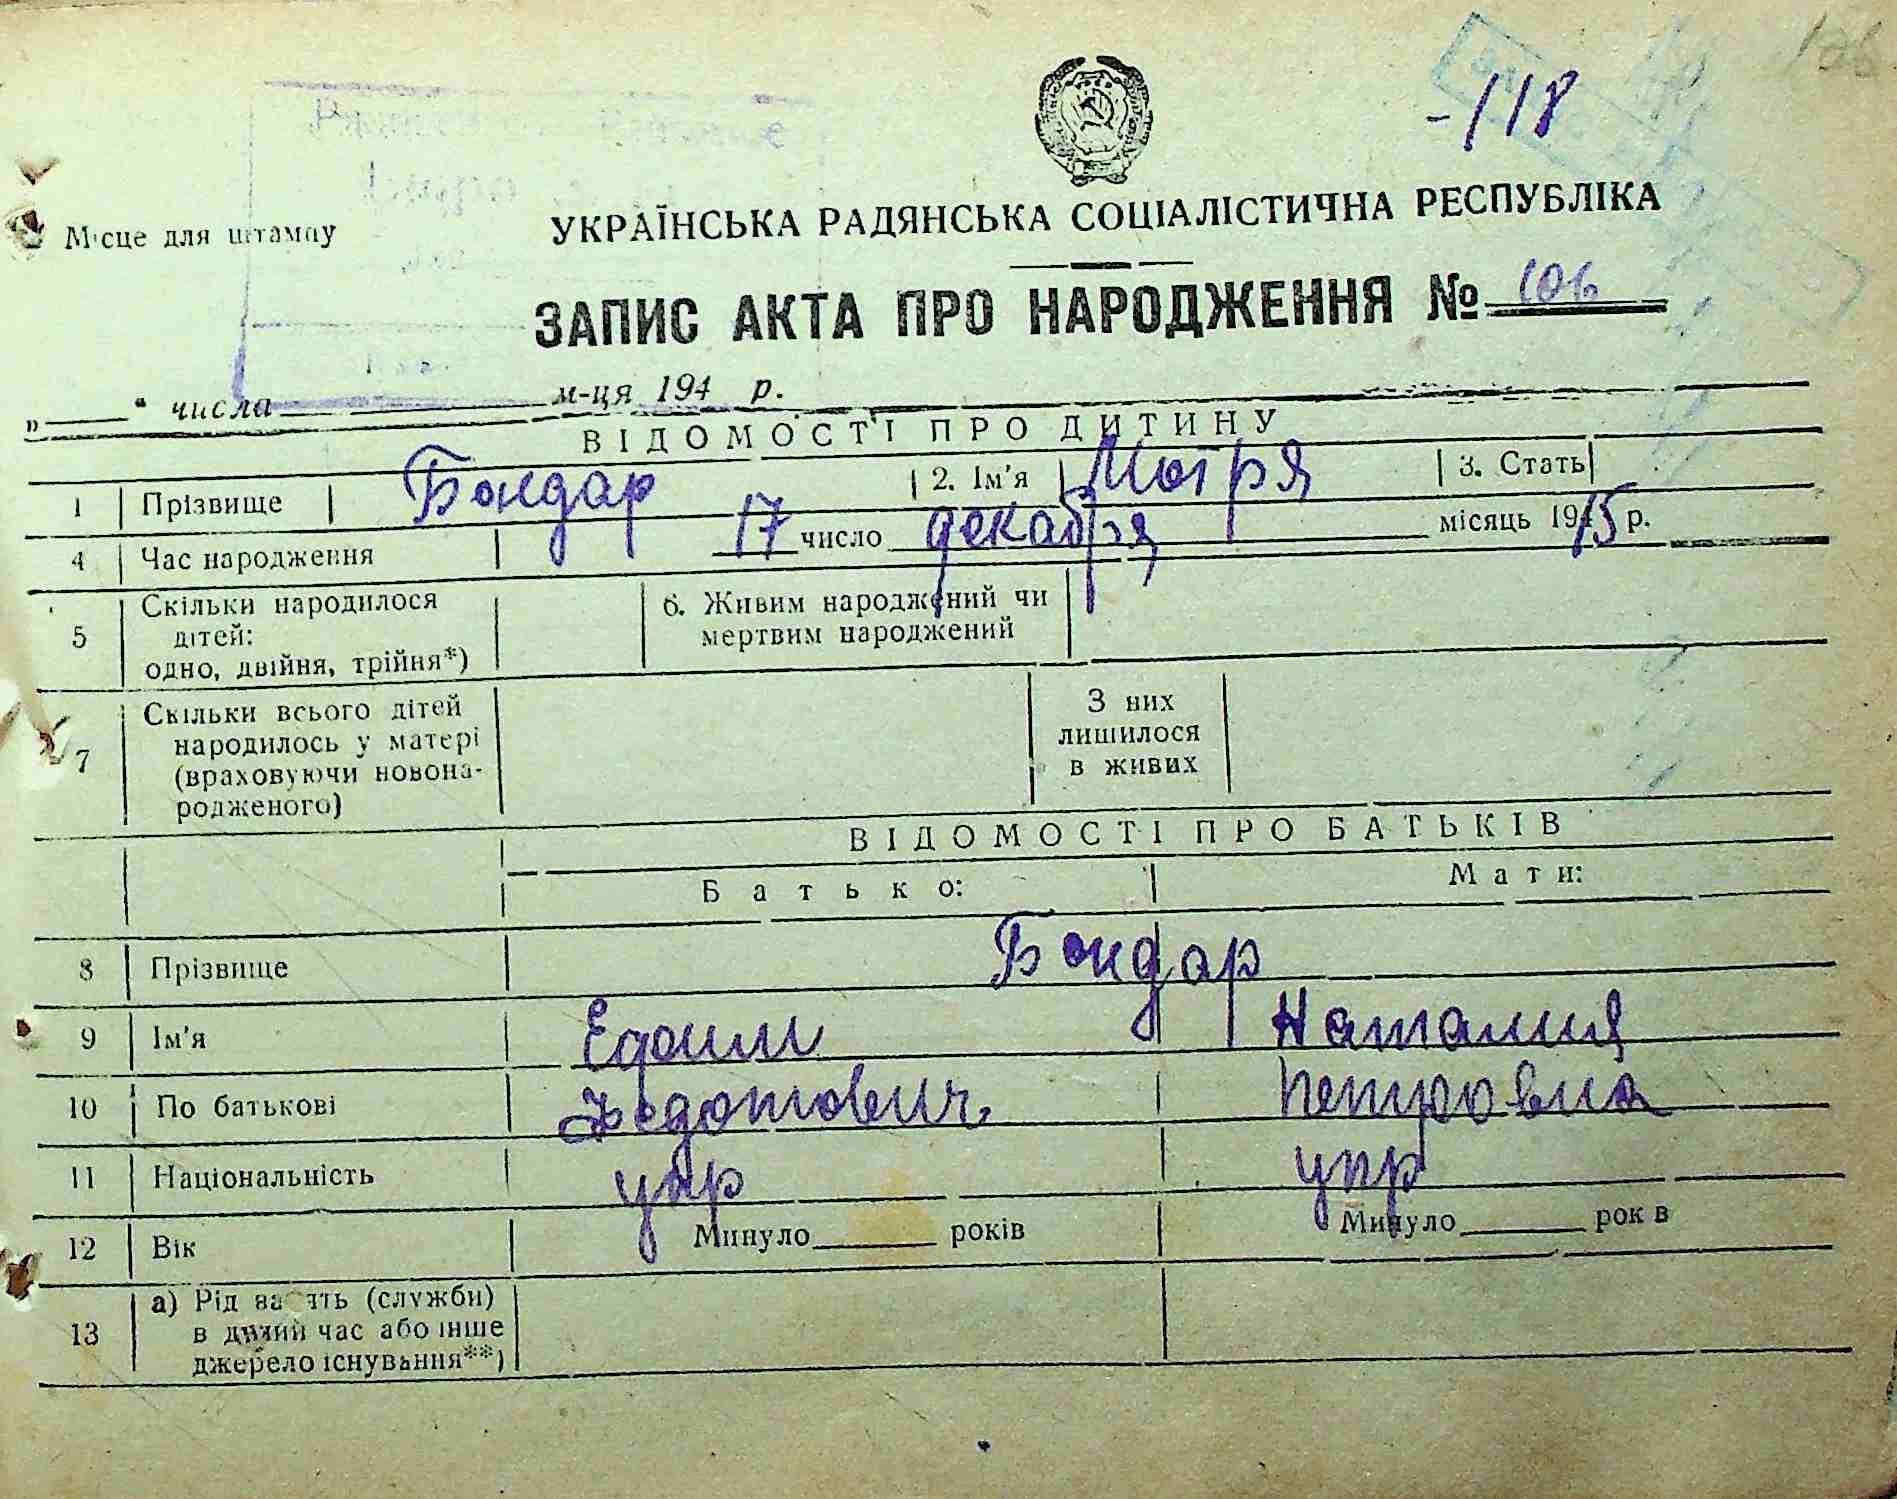 106
-118
Місце для штампу
УКРАЇНСЬКА РАДЯНСЬКА СОЦІАЛІСТИЧНА РЕСПУБЛІКА
ЗАПИС АКТА ПРО НАРОДЖЕННЯ № 106
„ “ числа м-ця 194 р.
ВІДОМОСТІ ПРО ДИТИНУ
1 Прізвище Бондар 2. Ім'я Мотря 3. Стать
4 Час народження 17 число декабря місяць 1915 р.
5 Скільки народилося дітей: одно, двійня, трійня*) 6. Живим народжений чи мертвим народжений
7 Скільки всього дітей народилось у матері (враховуючи новонародженого) З них лишилося в живих
ВІДОМОСТІ ПРО БАТЬКІВ
Батько: Мати:
8 Прізвище Бондар
9 Ім'я Наталия
10 По батькові Федотович Петровна
11 Національність укр укр
12 Вік Минуло років Минуло рок в
13 а) Рід занять (служби) в даний час або інше джерело існування**)